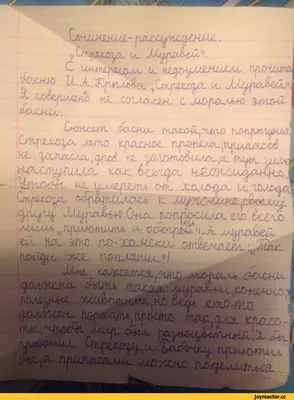 Сочинение-рассуждение.
"Стрекоза и Муравей".
С интересом и недоумением прочитал
басню И.А. Крылова "Стрекоза и Муравей".
Я совершено не согласен с моралью этой
басни.
Сюжет басни такой, что попрыгунья
Стрекоза лето красное пропела, припасов
не запасла, дров не заготовила, а тут зима
наступила как всегда неожиданно.
Чтобы не умереть от холода и голода
Стрекоза обратилась к мужчине, своему
другу Муравью. Она попросила его всего
лишь "приютить и обогреть". А муравей
ей на это по-хамски отвечает: "Так
пойди же попляши"!
Мне кажется, что мораль басни
должна быть такая: муравьи, конечно,
полезные животные, но ведь кто-то
должен порхать просто так, для красо-
ты, чтобы мир был разноцветный! Я бы
приютил Стрекозу, и бабочку приютил
бы, а припасами можно поделиться.
joyreactor.cc